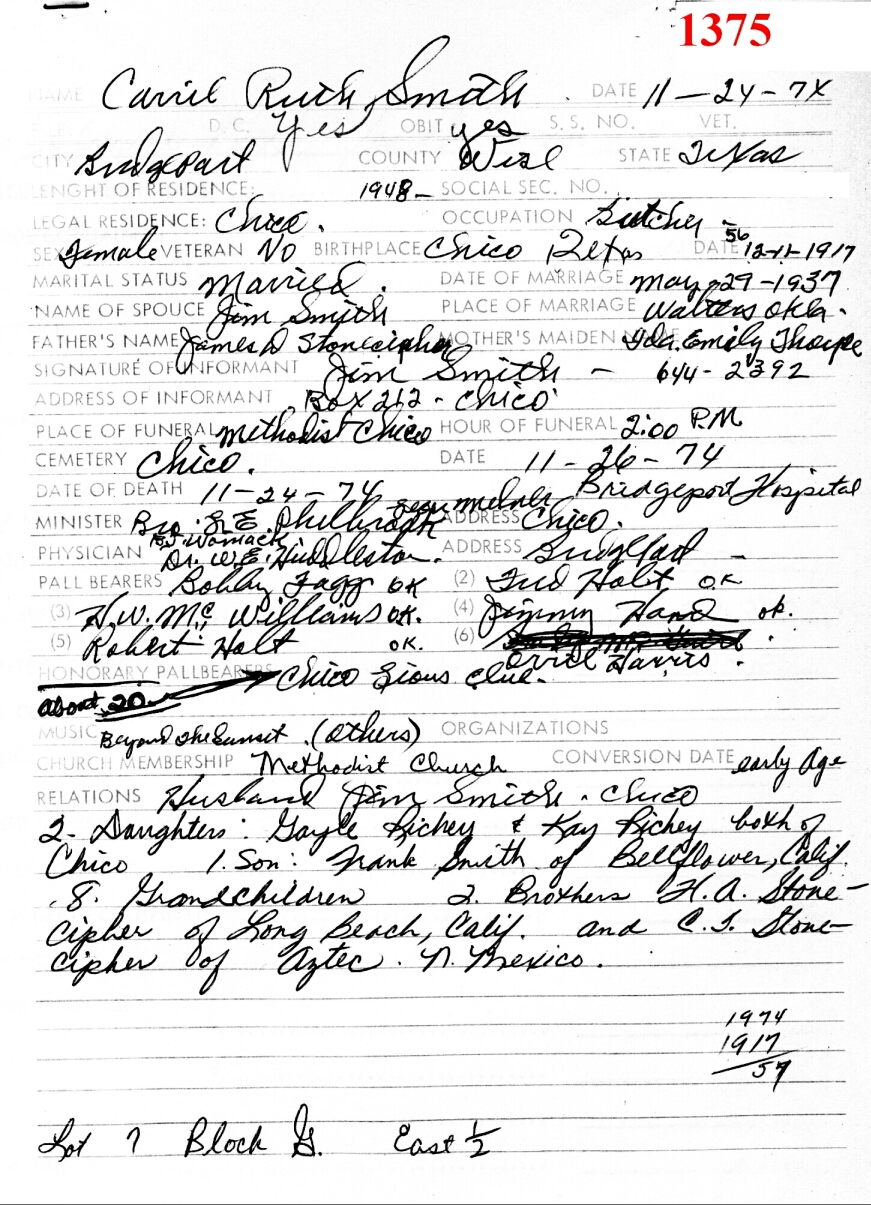 1375
NAME Carril Ruth Smith DATE 11-24-74
D.C. Yes OBIT yes S.S. NO. VET.
CITY Bridgeport COUNTY Wise STATE Texas
LENGHT OF RESIDENCE: 1948- SOCIAL SEC. NO.
LEGAL RESIDENCE: Chico. OCCUPATION Butcher -
56
SEX Female VETERAN No BIRTHPLACE Chico Texas DATE 12-11-1917
MARITAL STATUS Married. DATE OF MARRIAGE May-29-1937
NAME OF SPOUCE Jim Smith PLACE OF MARRIAGE Walters Okla.
FATHER'S NAME James D Stonecipher MOTHER'S MAIDEN Ida. Emily Thorpe
SIGNATURE OF INFORMANT Jim Smith - 644-2392
ADDRESS OF INFORMANT Box 212 - Chico
PLACE OF FUNERAL Methodist Chico HOUR OF FUNERAL 2:00 P.M
CEMETERY Chico. DATE 11-26-74
DATE OF DEATH 11-24-74 Bridgeport Hospital
MINISTER Bro. Philbrook ADDRESS Chico.
Womack
PHYSICIAN Dr. W.E. Huddleston. ADDRESS Bridgeport -
PALL BEARERS Bobby Fagg OK (2) Fred Holt OK
(3) H.W. Mc Williams OK. (4) Jimmy Hand ok.
(5) Robert Holt OK. (6)
Orvil Harris.
HONORARY PALLBEARERS Chico Lions Club.
About 20
MUSIC Beyond the Sunset. (others) ORGANIZATIONS
CHURCH MEMBERSHIP Methodist Church CONVERSION DATE early Age
RELATIONS Husband Jim Smith. Chico
2- Daughters: Gayle Richey & Kay Richey both of
Chico 1. Son: Frank Smith of Bellflower, Calif.
8. Grandchildren 2. Brothers H.A. Stone-
cipher of Long Beach, Calif. and C.T. Stone-
cipher of Aztec. N. Mexico.
1974
1917
57
Lot 7 Block G. East 1/2